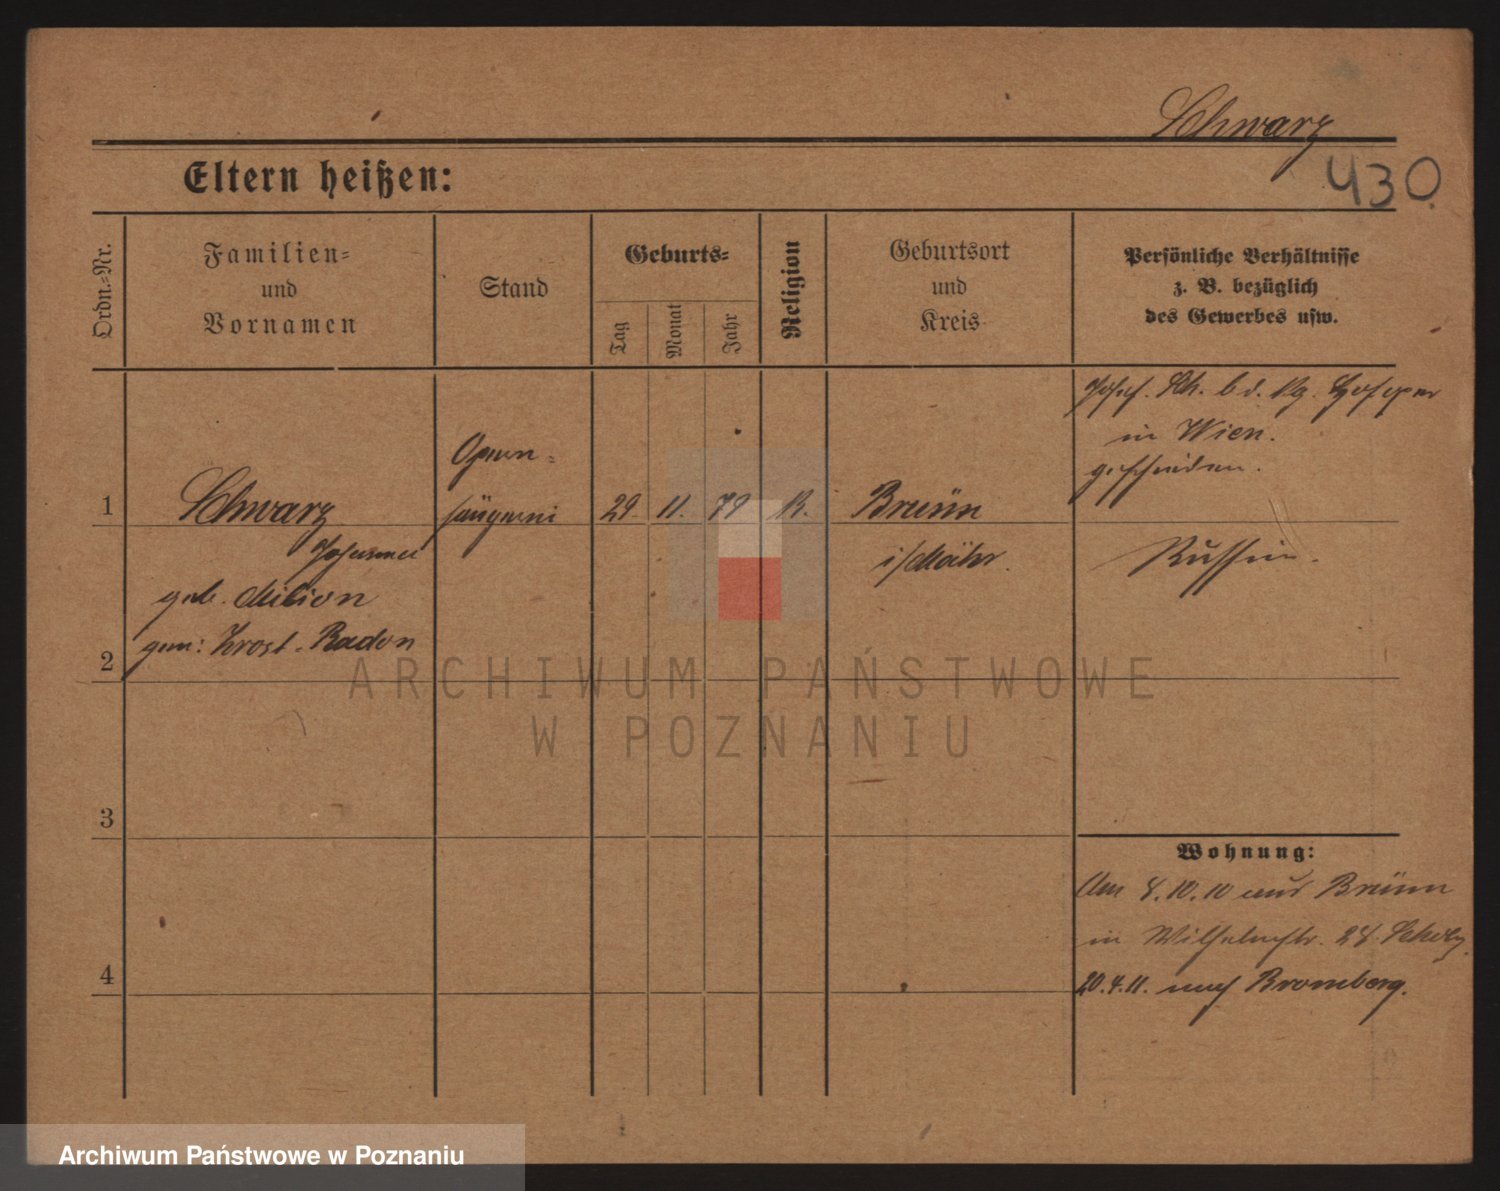 Schwarz
430.
Eltern heißen:
Ordn.=Nr.
Familien=
und
Vornamen
Stand
Geburts=
Tag
Monat
Jahr
Religion
Geburtsort
und
Kreis
Persönliche Verhältnisse
z. B. bezüglich
des Gewerbes usw.
Josef. Sch. b d. Kg. Hofoper
in Wien.
geschieden.
Opern=
1 Schwarz sängerin 29. 11. 79 K. Brünn
Johanna i/Mähr. Russin.
geb.
gen:
2
ARCHIWUM PAŃSTWOWE
W POZNANIU
3
Wohnung:
Am 8.10.10 aus Brünn
in Wilhelmstr. 28.
4
20.4.11. nach Bromberg.
Archiwum Państwowe w Poznaniu